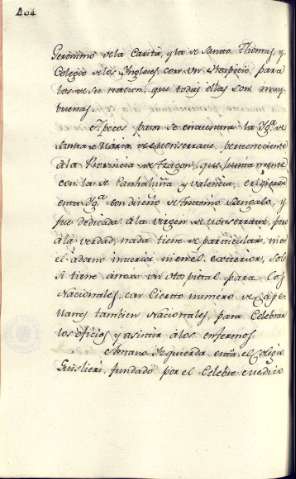 404
Geronimo de la Carita, y la de Santo Thomas, y
Colegio de los Yngleses con un Hospicio para
los de su nacion, que todas ellas son muy
buenas.
A pocos para se encuentra la Ygª de
Santa Maria de Monserrate, perteneciente
à la Provincia de Aragon, que junta mente
con la de Cathaluña y Valencia, erigieron
esta Ygª con diseño de Antonio Sangalo, y
fue dedicada à la Virgen de Monserrate, pero
à la verdad, nada tiene de particular, ni en
el adorno interior ni en el exterior, solo
si tiene anexo un Hospital para los
Nacionales, con cierto numero de Cape
llanes tambien Nacionales, para Celebrar
los oficios y asistir à los enfermos.
A mano Yzquierda està el Colegio
Guislieri, fundado por el Celebre medico